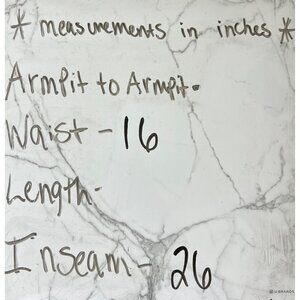 * measurements in inches *
Armpit to Armpit-
Waist - 16
Length-
Inseam - 26